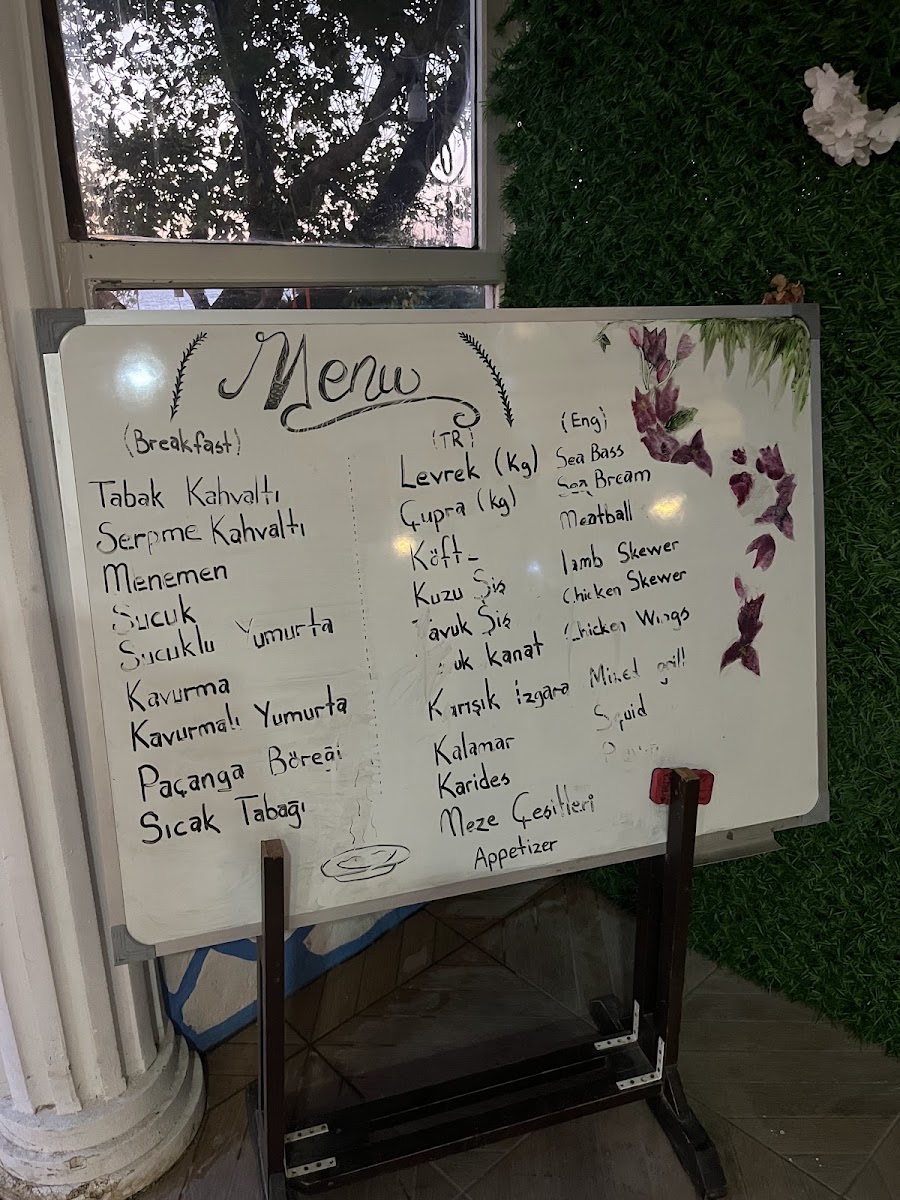 Menu
(Breakfast)
Tabak Kahvaltı
Serpme Kahvaltı
Menemen
Sucuk
Sucuklu Yumurta
Kavurma
Kavurmalı Yumurta
Paçanga Böreği
Sıcak Tabağı
(TR)
Levrek (Kg)
Çupra (kg)
Köft
Kuzu Şiş
avuk Şiş
uk kanat
Karışık izgara
Kalamar
Karides
Meze Çeşitleri
Appetizer
(Eng)
Sea Bass
Sea Bream
Meatball
lamb Skewer
Chicken Skewer
Chicken Wings
Mixet grill
Squid